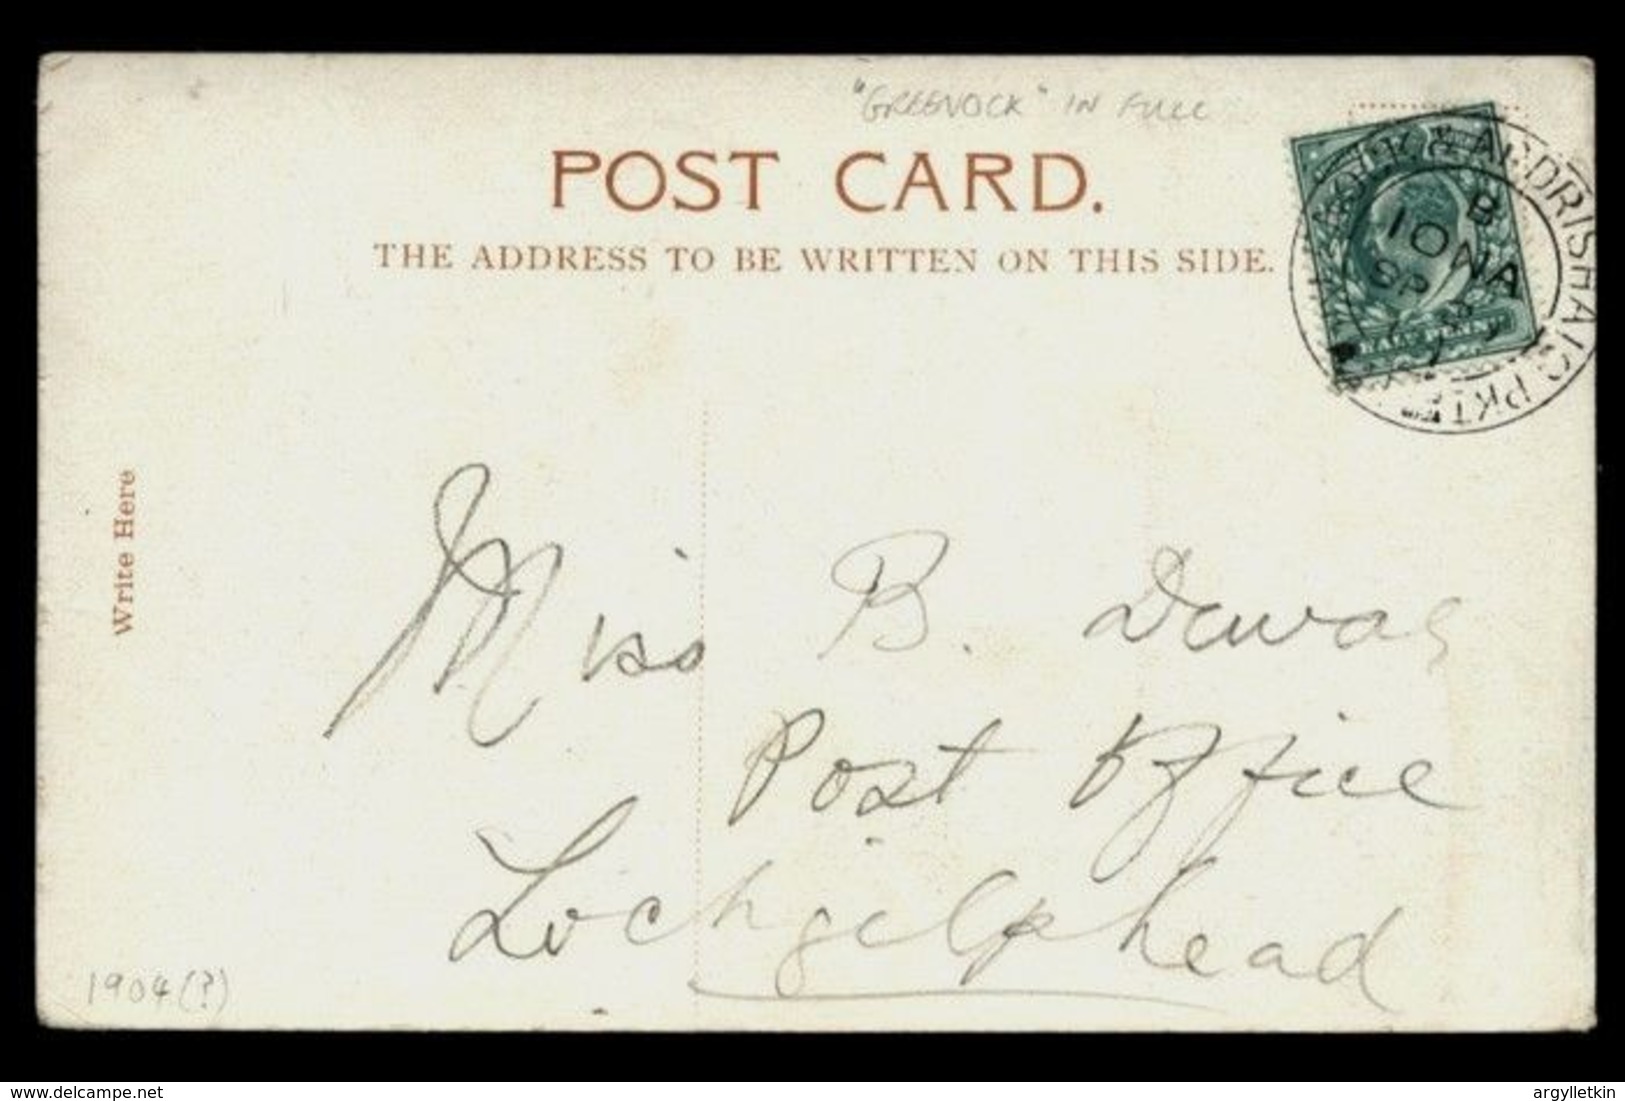 "GREENOCK" IN FULL
POST CARD.
THE ADDRESS TO BE WRITTEN ON THIS SIDE.
& ARDRISHAIG PKT
B
IONA
SP
HALF PENNY
Write Here
Miss B. Dewar
Post Office
Lochgilphead
1904(?)
www.delcampe.net
argylletkin